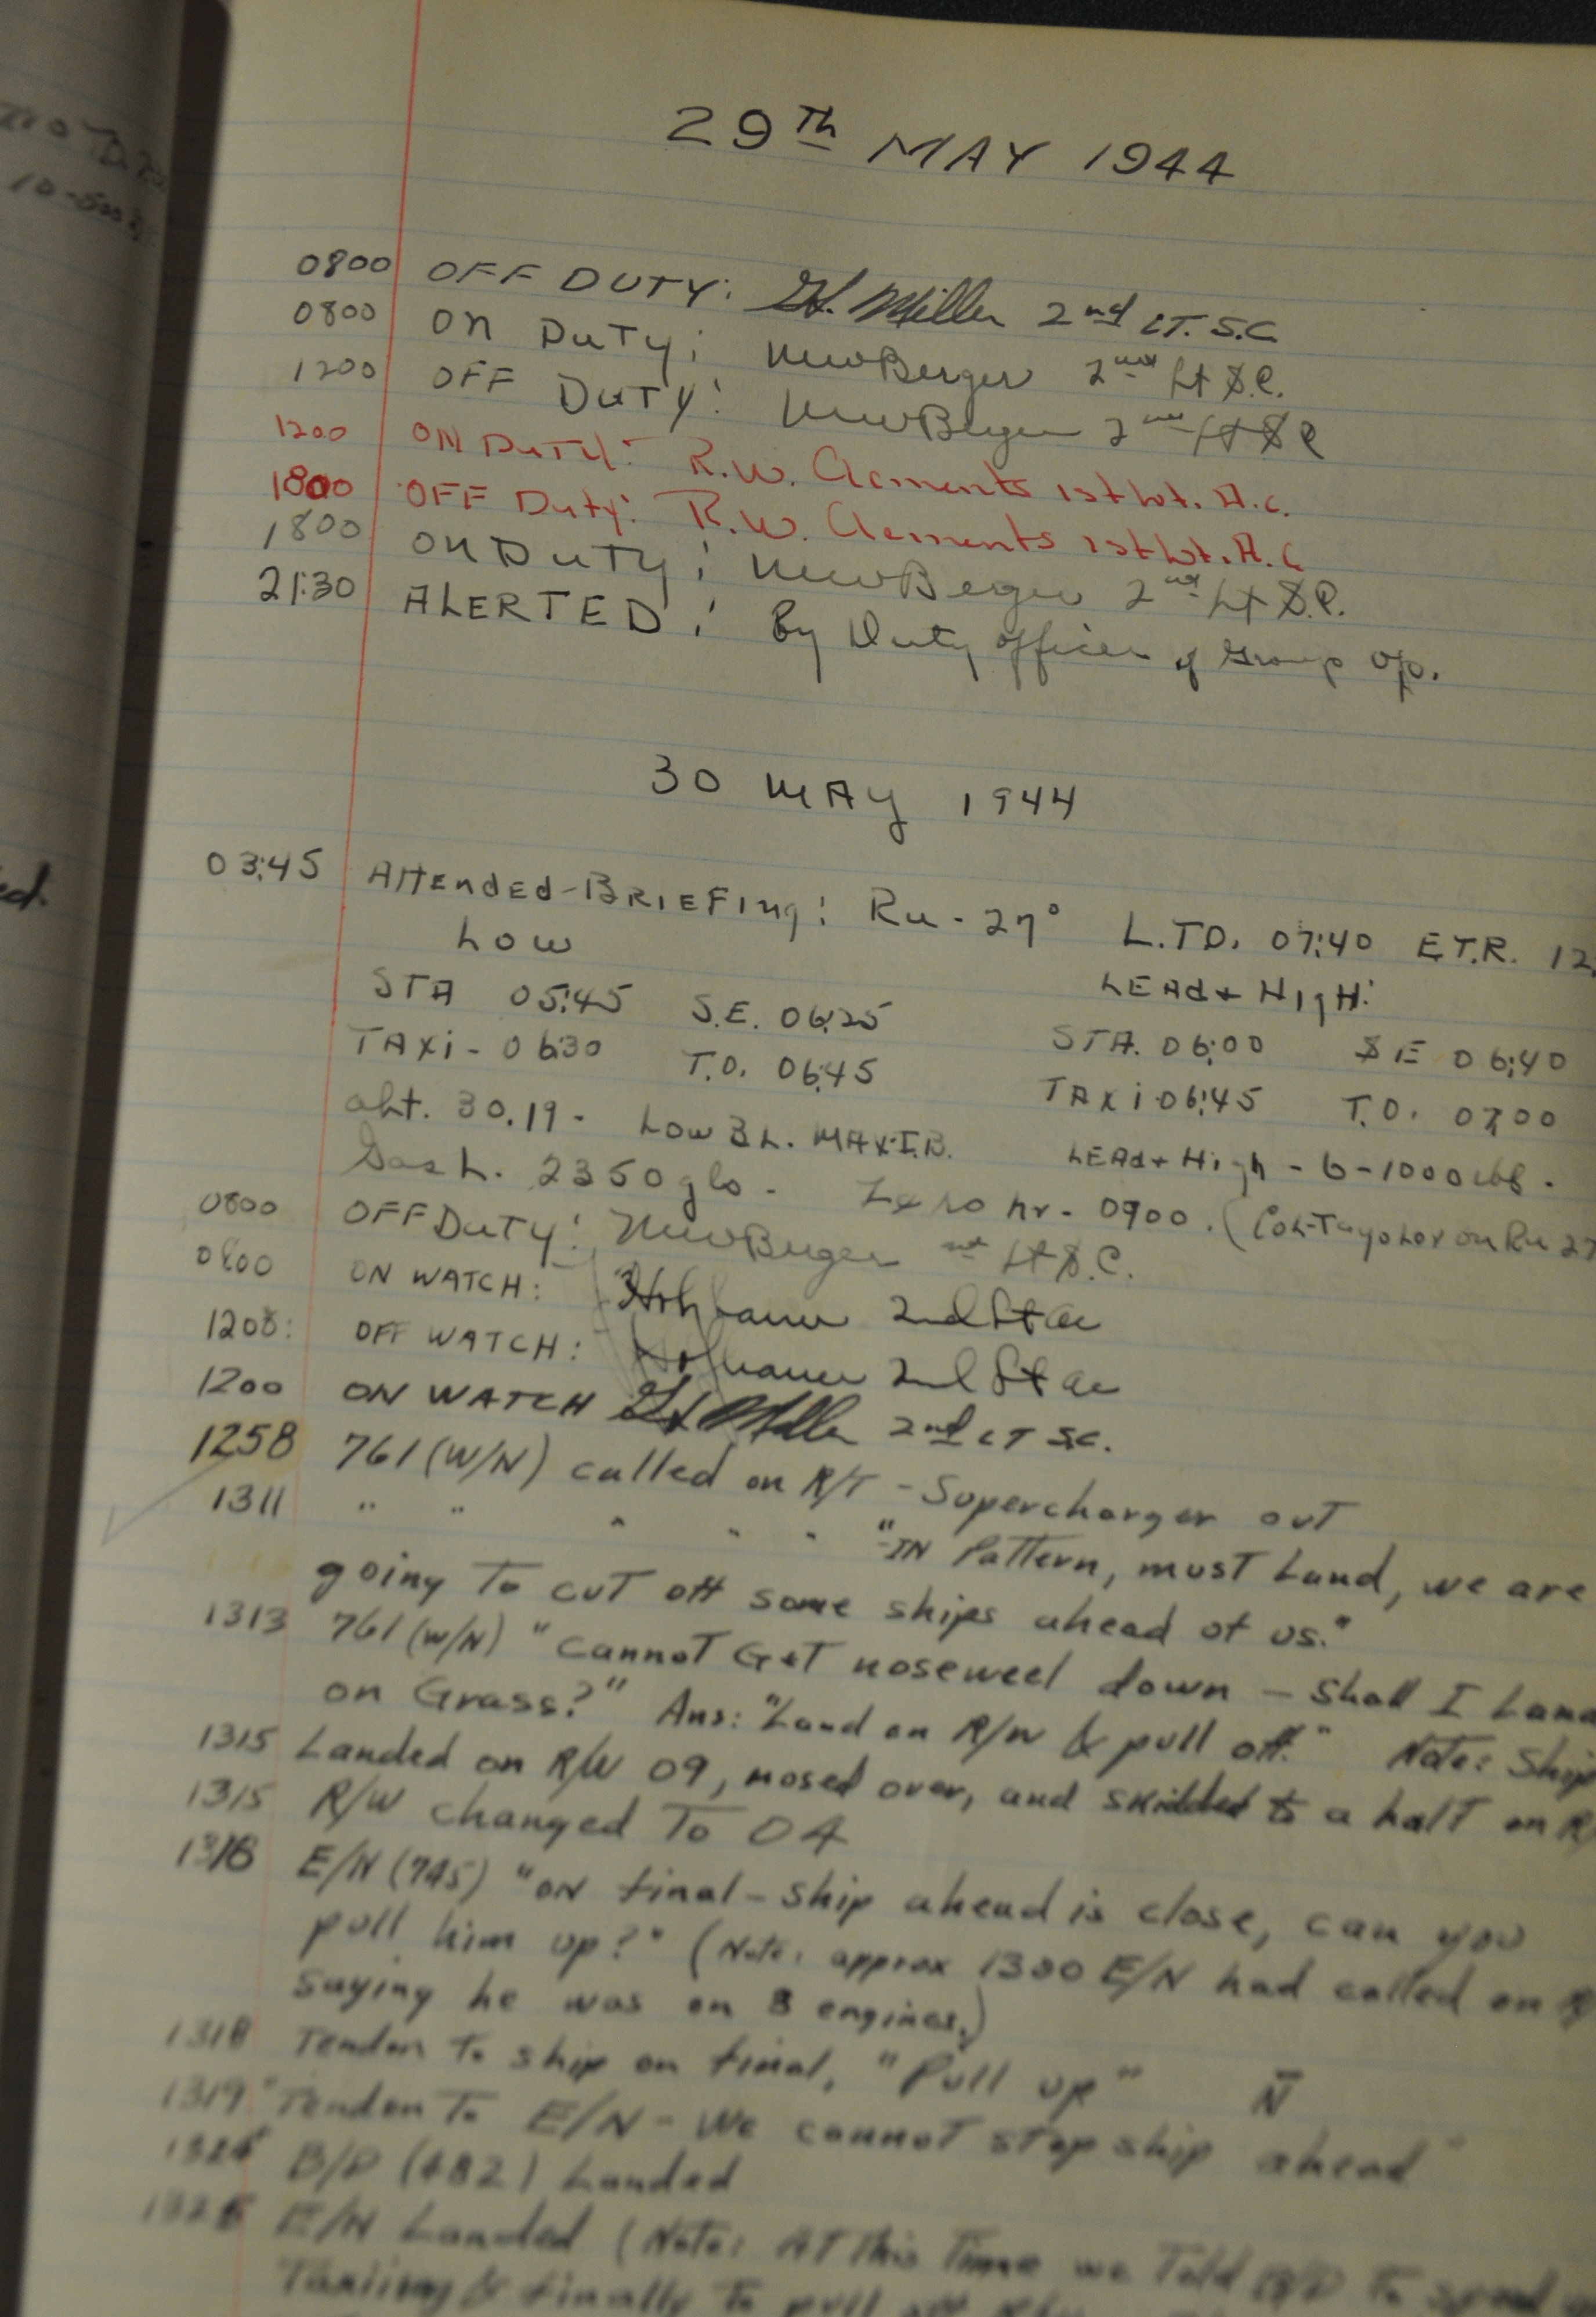 29Th MAY 1944
0800 OFF DUTY: G.H. Miller 2nd LT. S.C
0800 ON DuTy: NewBerger 2nd Lt S.C.
1200 OFF DuTy: NewBerger 2nd Lt S C
1200 ON DuTy: R.W. Clements 1st Lt. A.C.
1800 OFF Duty: R.W. Clements 1st Lt. A.C
1800 ON DuTy: NewBerger 2nd Lt S.C.
21:30 ALERTED: By Duty officer of Group Op.
30 MAy 1944
03:45 Attended-BRIEFing: Ru - 27° L.TD. 07:40 E.T.R. 12
Low LEAd + HigH:
STA 05:45 S.E. 06:25 STA. 06:00 S E 06:40
TAXi - 06:30 T.O. 06:45 TAXi 06:45 T.O. 07:00
alt. 30.19 - Low BL. MAX I.B. LEAd + High - 6-1000 lb.
Gas L. 2350 gls - Zero hr - 0900. (Col-Taylor on Ru 27
0800 OFF DuTy: NewBerger Lt S.C.
0800 ON WATCH: 2nd Lt ac
1200: OFF WATCH: 2nd Lt ac
1200 ON WATCH G H Miller 2nd LT S.C.
1258 761 (W/N) called on R/T - Supercharger out
1311 " " " " " "IN Pattern, must Land, we are
going To cut off some ships ahead of us."
1313 761 (W/N) "Cannot Get noseweel down - Shall I Land
on Grass?" Ans: "Land on R/W & pull off." Note: Ship
1315 Landed on R/W 09, nosed over, and skidded to a halt on R
1315 R/W changed To 04
1316 E/N (745) "ON final - Ship ahead is close, can you
pull him up?" (Note: approx 1300 E/N had called on R
saying he was on 3 engines.)
1318 Tendon To ship on final, "Pull up" N
1319 "Tendon To E/N - We cannot stop ship ahead"
B/D (482) Landed
E/N Landed (Note: At this Time we Told B/D To
Taxiing & finally to pull off